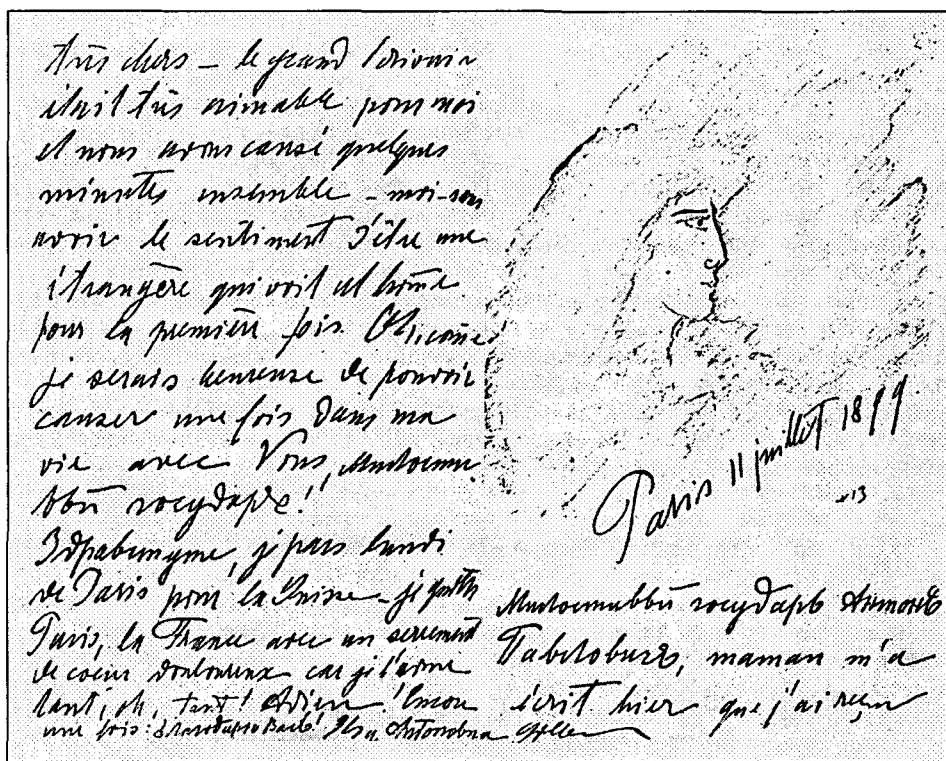 très chers – le grand écrivain
était très aimable pour moi
et nous avons causé quelques
minutes ensemble – moi – sans
avoir le sentiment d'être une
étrangère qui voit cet hom̄e
pour la première fois. Oh, com̄e
je serais heureuse de pouvoir
causer une fois dans ma
vie avec Vous, Милости
вый государь!
Здравствуйте, je pars lundi
de Paris pour la Suisse – je quitte
Paris, la France avec un serrement
de coeur douloureux car je l'aime
tant, oh, tant! Adieu! Encore
une fois: благодарю Васъ!
Paris 11 juillet 1899
–13
Милостивый государь Антонъ
Павловичъ, maman m'a
écrit hier que j'ai reçu